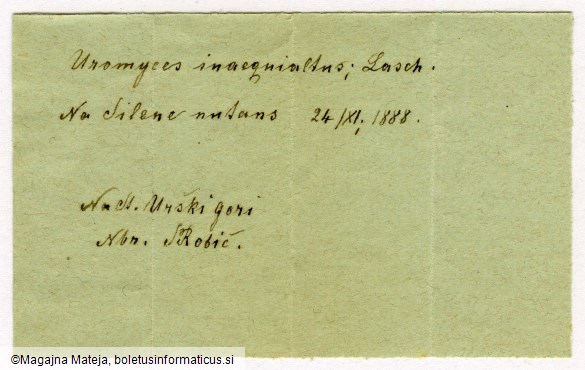 Uromyces inaequialtus; Lasch.
Na Silene nutans 24/XI, 1888.
Na St. Urški gori
Nbr. SRobič.
©Magajna Mateja, boletusinformaticus.si